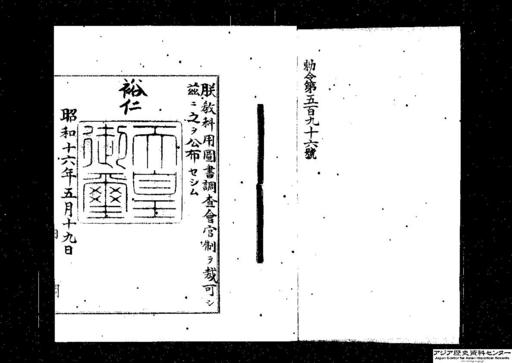 勅令第五百九十六號
朕教科用圖書調査會官制ヲ裁可シ
茲ニ之ヲ公布セシム
裕仁
天皇御璽
昭和十六年五月十九日
アジア歴史資料センター
Japan Center for Asian Historical Records